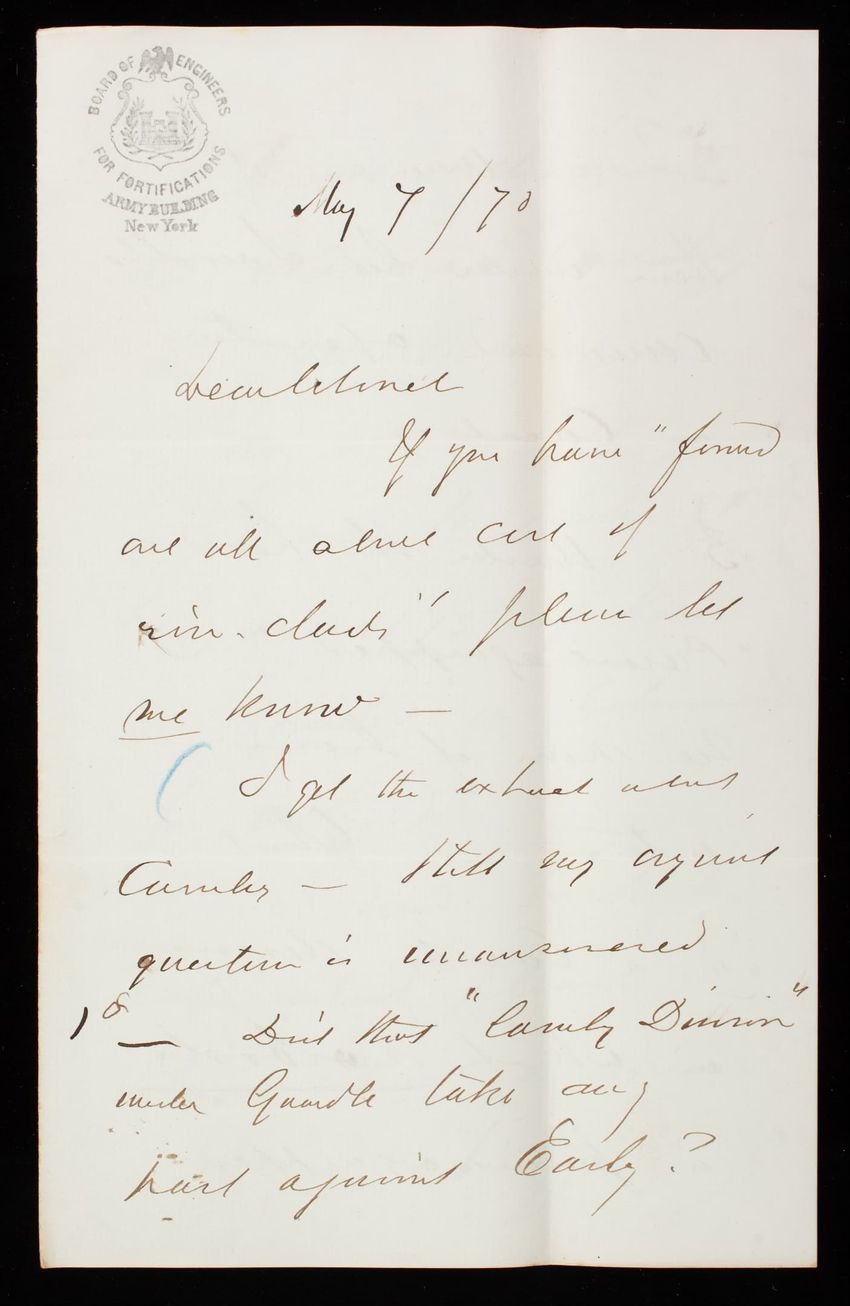 BOARD OF ENGINEERS
FOR FORTIFICATIONS
ARMY BUILDING
New York
May 7/70
Dear Colonel
If you have "found
out all about cost of
iron-clads" please let
me know —
I get the extract about
Cavalry — Still my
question is unanswered
1º — Did that "Cavalry Division"
under take any
part against Early?